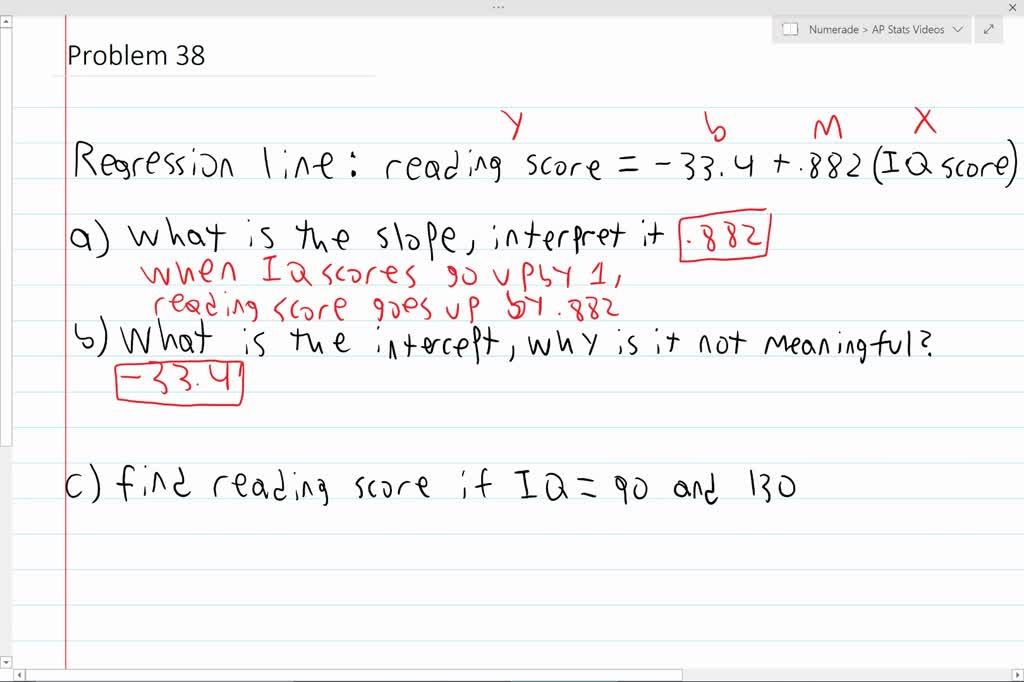 Numerade > AP Stats Videos
Problem 38
y b M X
Regression line: reading score = -33.4 + .882 (IQ score)
a) what is the slope, interpret it .882
when IQ scores go up by 1,
reading score goes up by .882
b) What is the intercept, why is it not meaningful?
-33.4
c) find reading score if IQ = 90 and 130